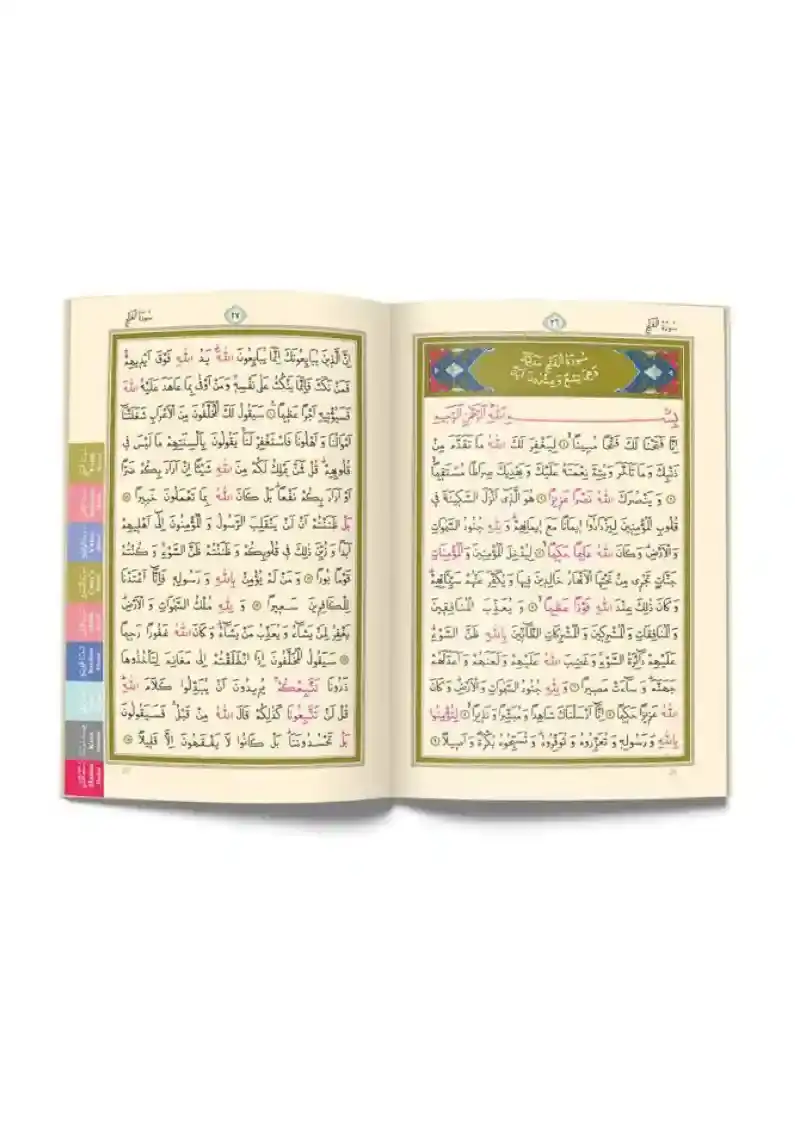 سُورَةُ الْفَتْحِ
٢٦
سُورَةُ الْفَتْحِ مَدَنِيَّةٌ
وَهِيَ تِسْعٌ وَعِشْرُونَ اٰيَةً
بِسْمِ اللّٰهِ الرَّحْمٰنِ الرَّحِيمِ
اِنَّا فَتَحْنَا لَكَ فَتْحًا مُبِينًا ۝١ لِيَغْفِرَ لَكَ اللّٰهُ مَا تَقَدَّمَ مِنْ
ذَنْبِكَ وَمَا تَاَخَّرَ وَيُتِمَّ نِعْمَتَهُ عَلَيْكَ وَيَهْدِيَكَ صِرَاطًا مُسْتَقِيمًا
۝٢ وَيَنْصُرَكَ اللّٰهُ نَصْرًا عَزِيزًا ۝٣ هُوَ الَّذِٓى اَنْزَلَ السَّكِينَةَ فِى
قُلُوبِ الْمُؤْمِنِينَ لِيَزْدَادُٓوا اِيمَانًا مَعَ اِيمَانِهِمْ وَلِلّٰهِ جُنُودُ السَّمٰوَاتِ
وَالْاَرْضِ وَكَانَ اللّٰهُ عَلِيمًا حَكِيمًا ۝٤ لِيُدْخِلَ الْمُؤْمِنِينَ وَالْمُؤْمِنَاتِ
جَنَّاتٍ تَجْرِى مِنْ تَحْتِهَا الْاَنْهَارُ خَالِدِينَ فِيهَا وَيُكَفِّرَ عَنْهُمْ سَيِّـَٔاتِهِمْ
وَكَانَ ذٰلِكَ عِنْدَ اللّٰهِ فَوْزًا عَظِيمًا ۝٥ وَيُعَذِّبَ الْمُنَافِقِينَ
وَالْمُنَافِقَاتِ وَالْمُشْرِكِينَ وَالْمُشْرِكَاتِ الظَّٓانِّينَ بِاللّٰهِ ظَنَّ السَّوْءِ
عَلَيْهِمْ دَٓائِرَةُ السَّوْءِ وَغَضِبَ اللّٰهُ عَلَيْهِمْ وَلَعَنَهُمْ وَاَعَدَّ لَهُمْ
جَهَنَّمَ وَسَٓاءَتْ مَصِيرًا ۝٦ وَلِلّٰهِ جُنُودُ السَّمٰوَاتِ وَالْاَرْضِ وَكَانَ
اللّٰهُ عَزِيزًا حَكِيمًا ۝٧ اِنَّٓا اَرْسَلْنَاكَ شَاهِدًا وَمُبَشِّرًا وَنَذِيرًا ۝٨ لِتُؤْمِنُوا
بِاللّٰهِ وَرَسُولِهِ وَتُعَزِّرُوهُ وَتُوَقِّرُوهُ وَتُسَبِّحُوهُ بُكْرَةً وَاَصِيلًا ۝٩
سُورَةُ الْفَتْحِ
٢٧
اِنَّ الَّذِينَ يُبَايِعُونَكَ اِنَّمَا يُبَايِعُونَ اللّٰهَ يَدُ اللّٰهِ فَوْقَ اَيْدِيهِمْ
فَمَنْ نَكَثَ فَاِنَّمَا يَنْكُثُ عَلٰى نَفْسِهِ وَمَنْ اَوْفٰى بِمَا عَاهَدَ عَلَيْهُ اللّٰهَ
فَسَيُؤْتِيهِ اَجْرًا عَظِيمًا ۝١٠ سَيَقُولُ لَكَ الْمُخَلَّفُونَ مِنَ الْاَعْرَابِ شَغَلَتْنَٓا
اَمْوَالُنَا وَاَهْلُونَا فَاسْتَغْفِرْ لَنَا يَقُولُونَ بِاَلْسِنَتِهِمْ مَا لَيْسَ فِى
قُلُوبِهِمْ قُلْ فَمَنْ يَمْلِكُ لَكُمْ مِنَ اللّٰهِ شَيْـًٔا اِنْ اَرَادَ بِكُمْ ضَرًّا
اَوْ اَرَادَ بِكُمْ نَفْعًا بَلْ كَانَ اللّٰهُ بِمَا تَعْمَلُونَ خَبِيرًا ۝١١
بَلْ ظَنَنْتُمْ اَنْ لَنْ يَنْقَلِبَ الرَّسُولُ وَالْمُؤْمِنُونَ اِلٰٓى اَهْلِيهِمْ
اَبَدًا وَزُيِّنَ ذٰلِكَ فِى قُلُوبِكُمْ وَظَنَنْتُمْ ظَنَّ السَّوْءِ وَكُنْتُمْ
قَوْمًا بُورًا ۝١٢ وَمَنْ لَمْ يُؤْمِنْ بِاللّٰهِ وَرَسُولِهِ فَاِنَّٓا اَعْتَدْنَا
لِلْكَافِرِينَ سَعِيرًا ۝١٣ وَلِلّٰهِ مُلْكُ السَّمٰوَاتِ وَالْاَرْضِ
يَغْفِرُ لِمَنْ يَشَٓاءُ وَيُعَذِّبُ مَنْ يَشَٓاءُ وَكَانَ اللّٰهُ غَفُورًا رَحِيمًا
۝١٤ سَيَقُولُ الْمُخَلَّفُونَ اِذَا انْطَلَقْتُمْ اِلٰى مَغَانِمَ لِتَأْخُذُوهَا
ذَرُونَا نَتَّبِعْكُمْ يُرِيدُونَ اَنْ يُبَدِّلُوا كَلَامَ اللّٰهِ
قُلْ لَنْ تَتَّبِعُونَا كَذٰلِكُمْ قَالَ اللّٰهُ مِنْ قَبْلُ فَسَيَقُولُونَ
بَلْ تَحْسُدُونَنَا بَلْ كَانُوا لَا يَفْقَهُونَ اِلَّا قَلِيلًا ۝١٥